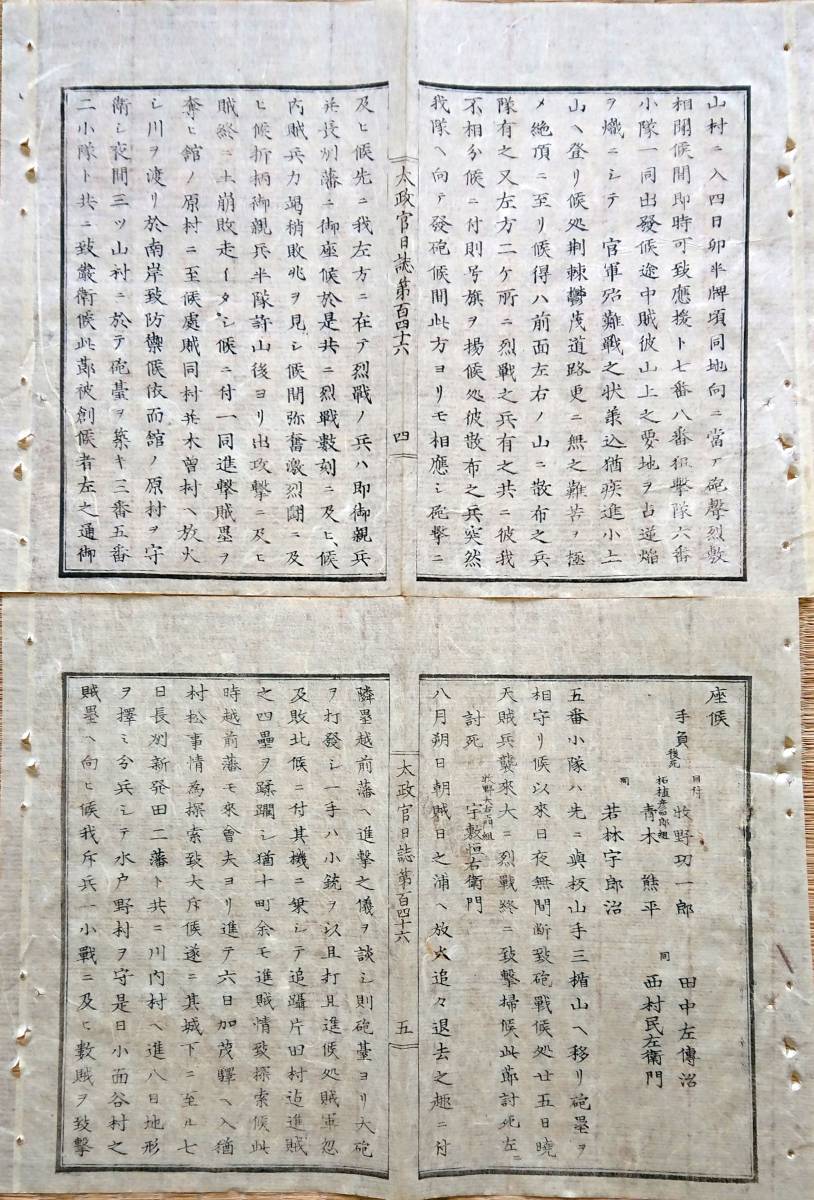 山村ニ入四日卯半牌頃同地向ニ當テ砲聲烈敷
相聞候間即時可致應援ト七番八番狙擊隊六番
小隊一同出發候途中賊彼山上之要地ヲ占逆焰
ヲ熾ニシテ 官軍殆難戰之狀㒵込猶疾進小上
山ヘ登リ候処荆棘欝茂道路更ニ無之難苦ヲ極
メ絶頂ニ至リ候得ハ前面左右ノ山ニ散布之兵
隊有之又左方二ケ所ニ烈戰之兵有之共ニ彼我
不相分候ニ付則号旗ヲ揚候処彼散布之兵突然
我隊ヘ向テ發砲候間此方ヨリモ相應シ砲擊ニ
太政官日誌第百四十六
四
及ヒ候先ニ我左方ニ在テ烈戰ノ兵ハ即御親兵
並長州藩ニ御座候於是共ニ烈戰數刻ニ及ヒ候
内賊兵力竭稍敗兆ヲ見シ候間弥奮激烈闘ニ及
ヒ候折柄御親兵半隊許山後ヨリ出攻擊ニ及ヒ
賊終ニ土崩敗走イタシ候ニ付一同進擊賊壘ヲ
奪ヒ館ノ原村ニ至候處賊同村并木曽村ヘ放火
シ川ヲ渡リ於南岸致防禦候依而館ノ原村ヲ守
衛シ夜間三ツ山村ニ於テ砲臺ヲ築キ三番五番
二小隊ト共ニ致嚴衛候此節被創候者左之通御
座候
手負 後死 目付 牧野功一郎 田中左傳治
柘植彦四郎組 青木熊平 同 西村民左衛門
同 若林宇郎治
五番小隊ハ先ニ與板山手三楯山ヘ移リ砲壘ヲ
相守リ候以來日夜無間断致砲戰候処廿五日曉
天賊兵襲來大ニ烈戰終ニ致擊掃候此節討死左ニ
討死 牧野大右衛門組 宇敷恒右衛門
八月朔日朝賊日之浦ヘ放火追々退去之趣ニ付
太政官日誌第百四十六
五
隣壘越前藩ヘ進擊之儀ヲ談シ則砲臺ヨリ大砲
ヲ打發シ一手ハ小銃ヲ以且打且進候処賊軍忽
及敗北候ニ付其機ニ乗シテ追躡片田村迠進賊
之四壘ヲ蹂躙シ猶十町余モ進賊情致探索候此
時越前藩モ來會夫ヨリ進テ六日加茂驛ヘ入猶
村松事情為探索致大斥候遂ニ其城下ニ至ル七
日長州新発田二藩ト共ニ川内村ヘ進八日地形
ヲ擇ミ分兵シテ水戸野村ヲ守是日小面谷村之
賊壘ヘ向ヒ候我斥兵一小戰ニ及ヒ數賊ヲ致擊